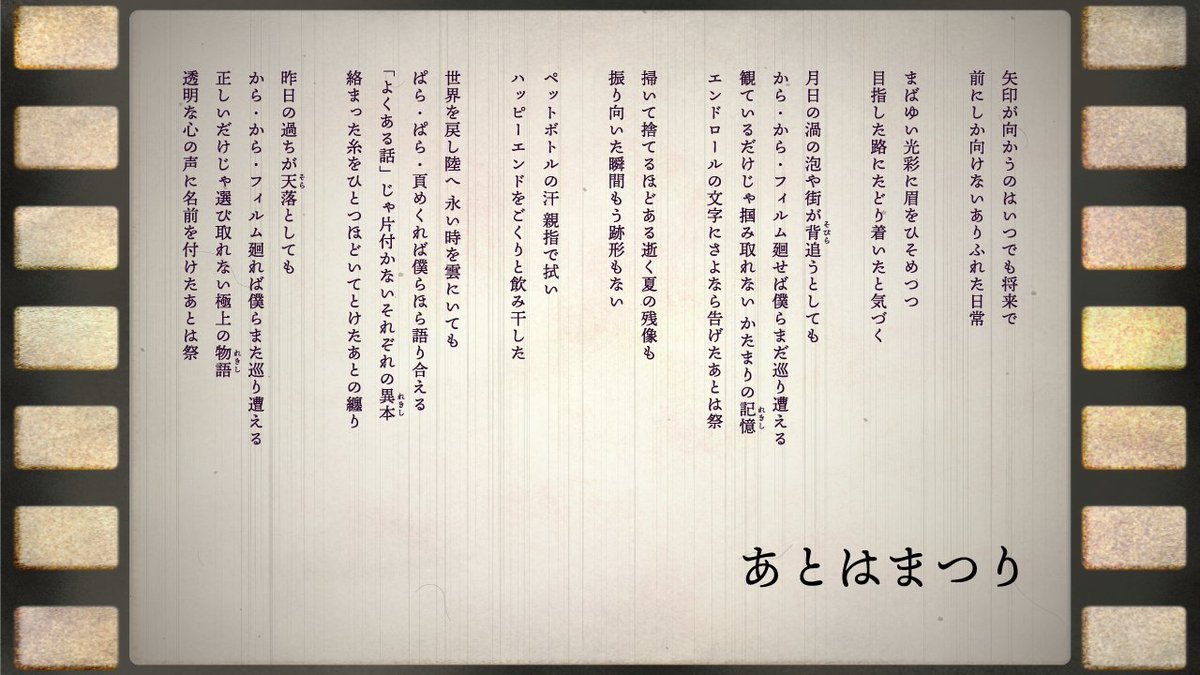 矢印が向かうのはいつでも将来で
前にしか向けないありふれた日常
まばゆい光彩に眉をひそめつつ
目指した路にたどり着いたと気づく
月日の渦の泡や街が背追うとしても
そびら
から・から・フィルム廻せば僕らまだ巡り遭える
観ているだけじゃ掴み取れない かたまりの記憶
れきし
エンドロールの文字にさよなら告げたあとは祭
掃いて捨てるほどある逝く夏の残像も
振り向いた瞬間もう跡形もない
ペットボトルの汗 親指で拭い
ハッピーエンドをごくりと飲み干した
世界を戻し陸へ 永い時を雲にいても
ぱら・ぱら・頁めくれば僕らほら語り合える
「よくある話」じゃ片付かないそれぞれの異本
れきし
絡まった糸をひとつほどいてとけたあとの纏り
昨日の過ちが天落としても
そら
から・から・フィルム廻れば僕らまた巡り遭える
正しいだけじゃ選び取れない極上の物語
れきし
透明な心の声に名前を付けたあとは祭
あとはまつり